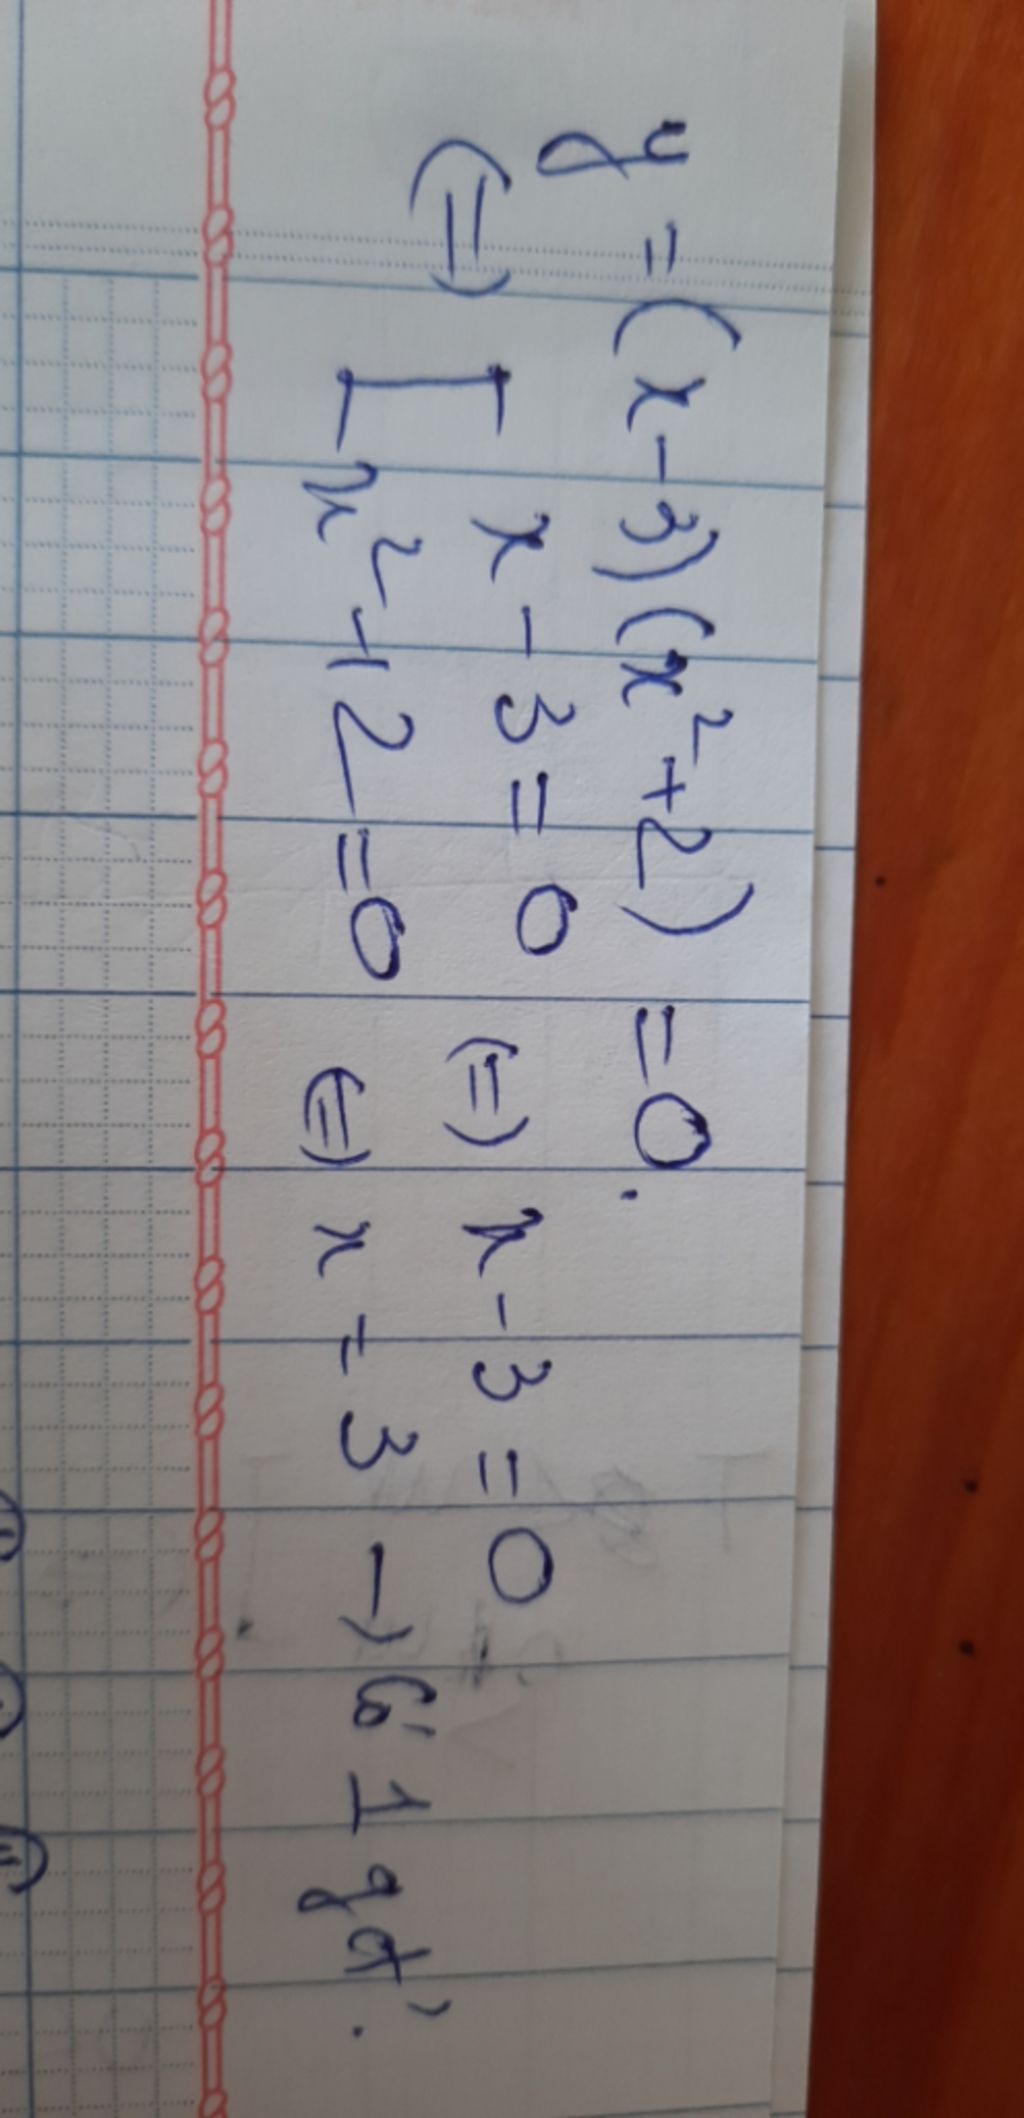 y = (x - 3)(x² + 2) = 0.
(=) [ x - 3 = 0 (=) x - 3 = 0
x² + 2 = 0 (=) x = 3 → Có 1 gđ'.